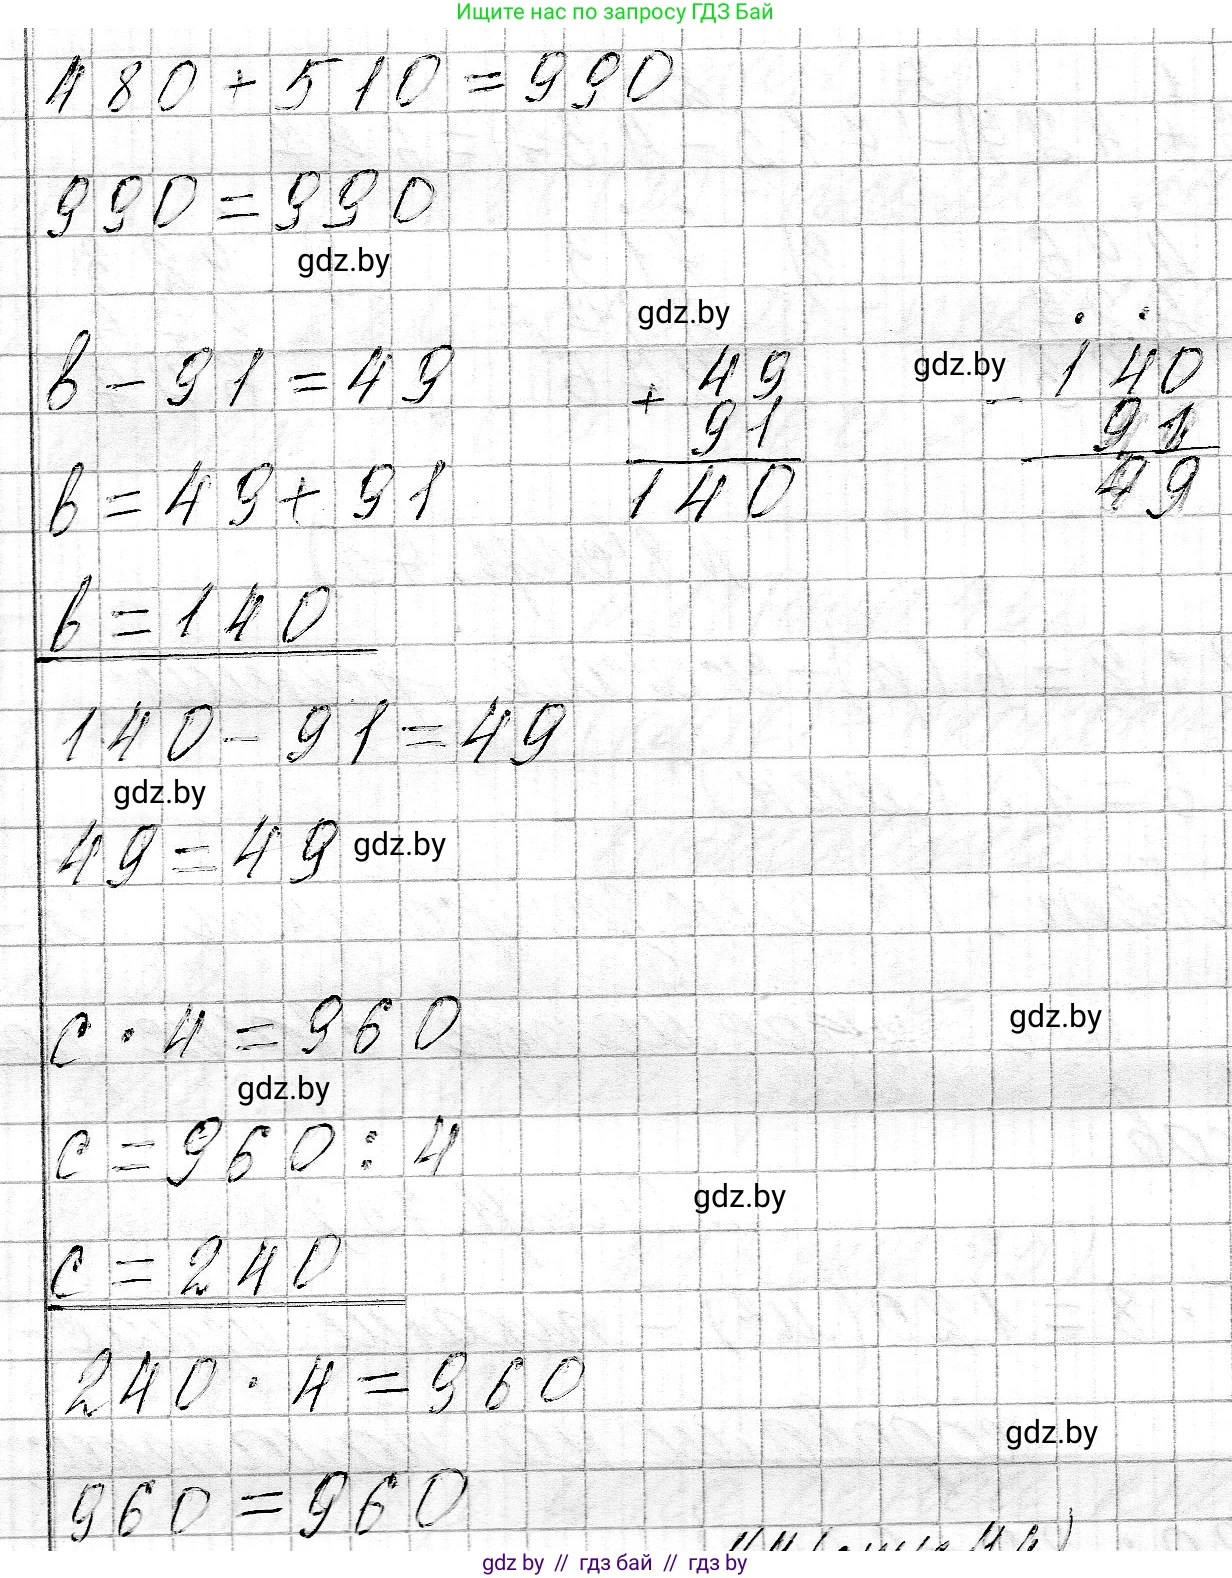 Ищите нас по запросу ГДЗ Бай
480 + 510 = 990
990 = 990
gdz.by
gdz.by
gdz.by
в - 91 = 49
+ 49
91
140
- 140
91
49
в = 49 + 91
в = 140
140 - 91 = 49
gdz.by
49 = 49
gdz.by
с · 4 = 960
gdz.by
gdz.by
с = 960 : 4
gdz.by
с = 240
240 · 4 = 960
gdz.by
960 = 960
gdz by // гдз бай // gdz by